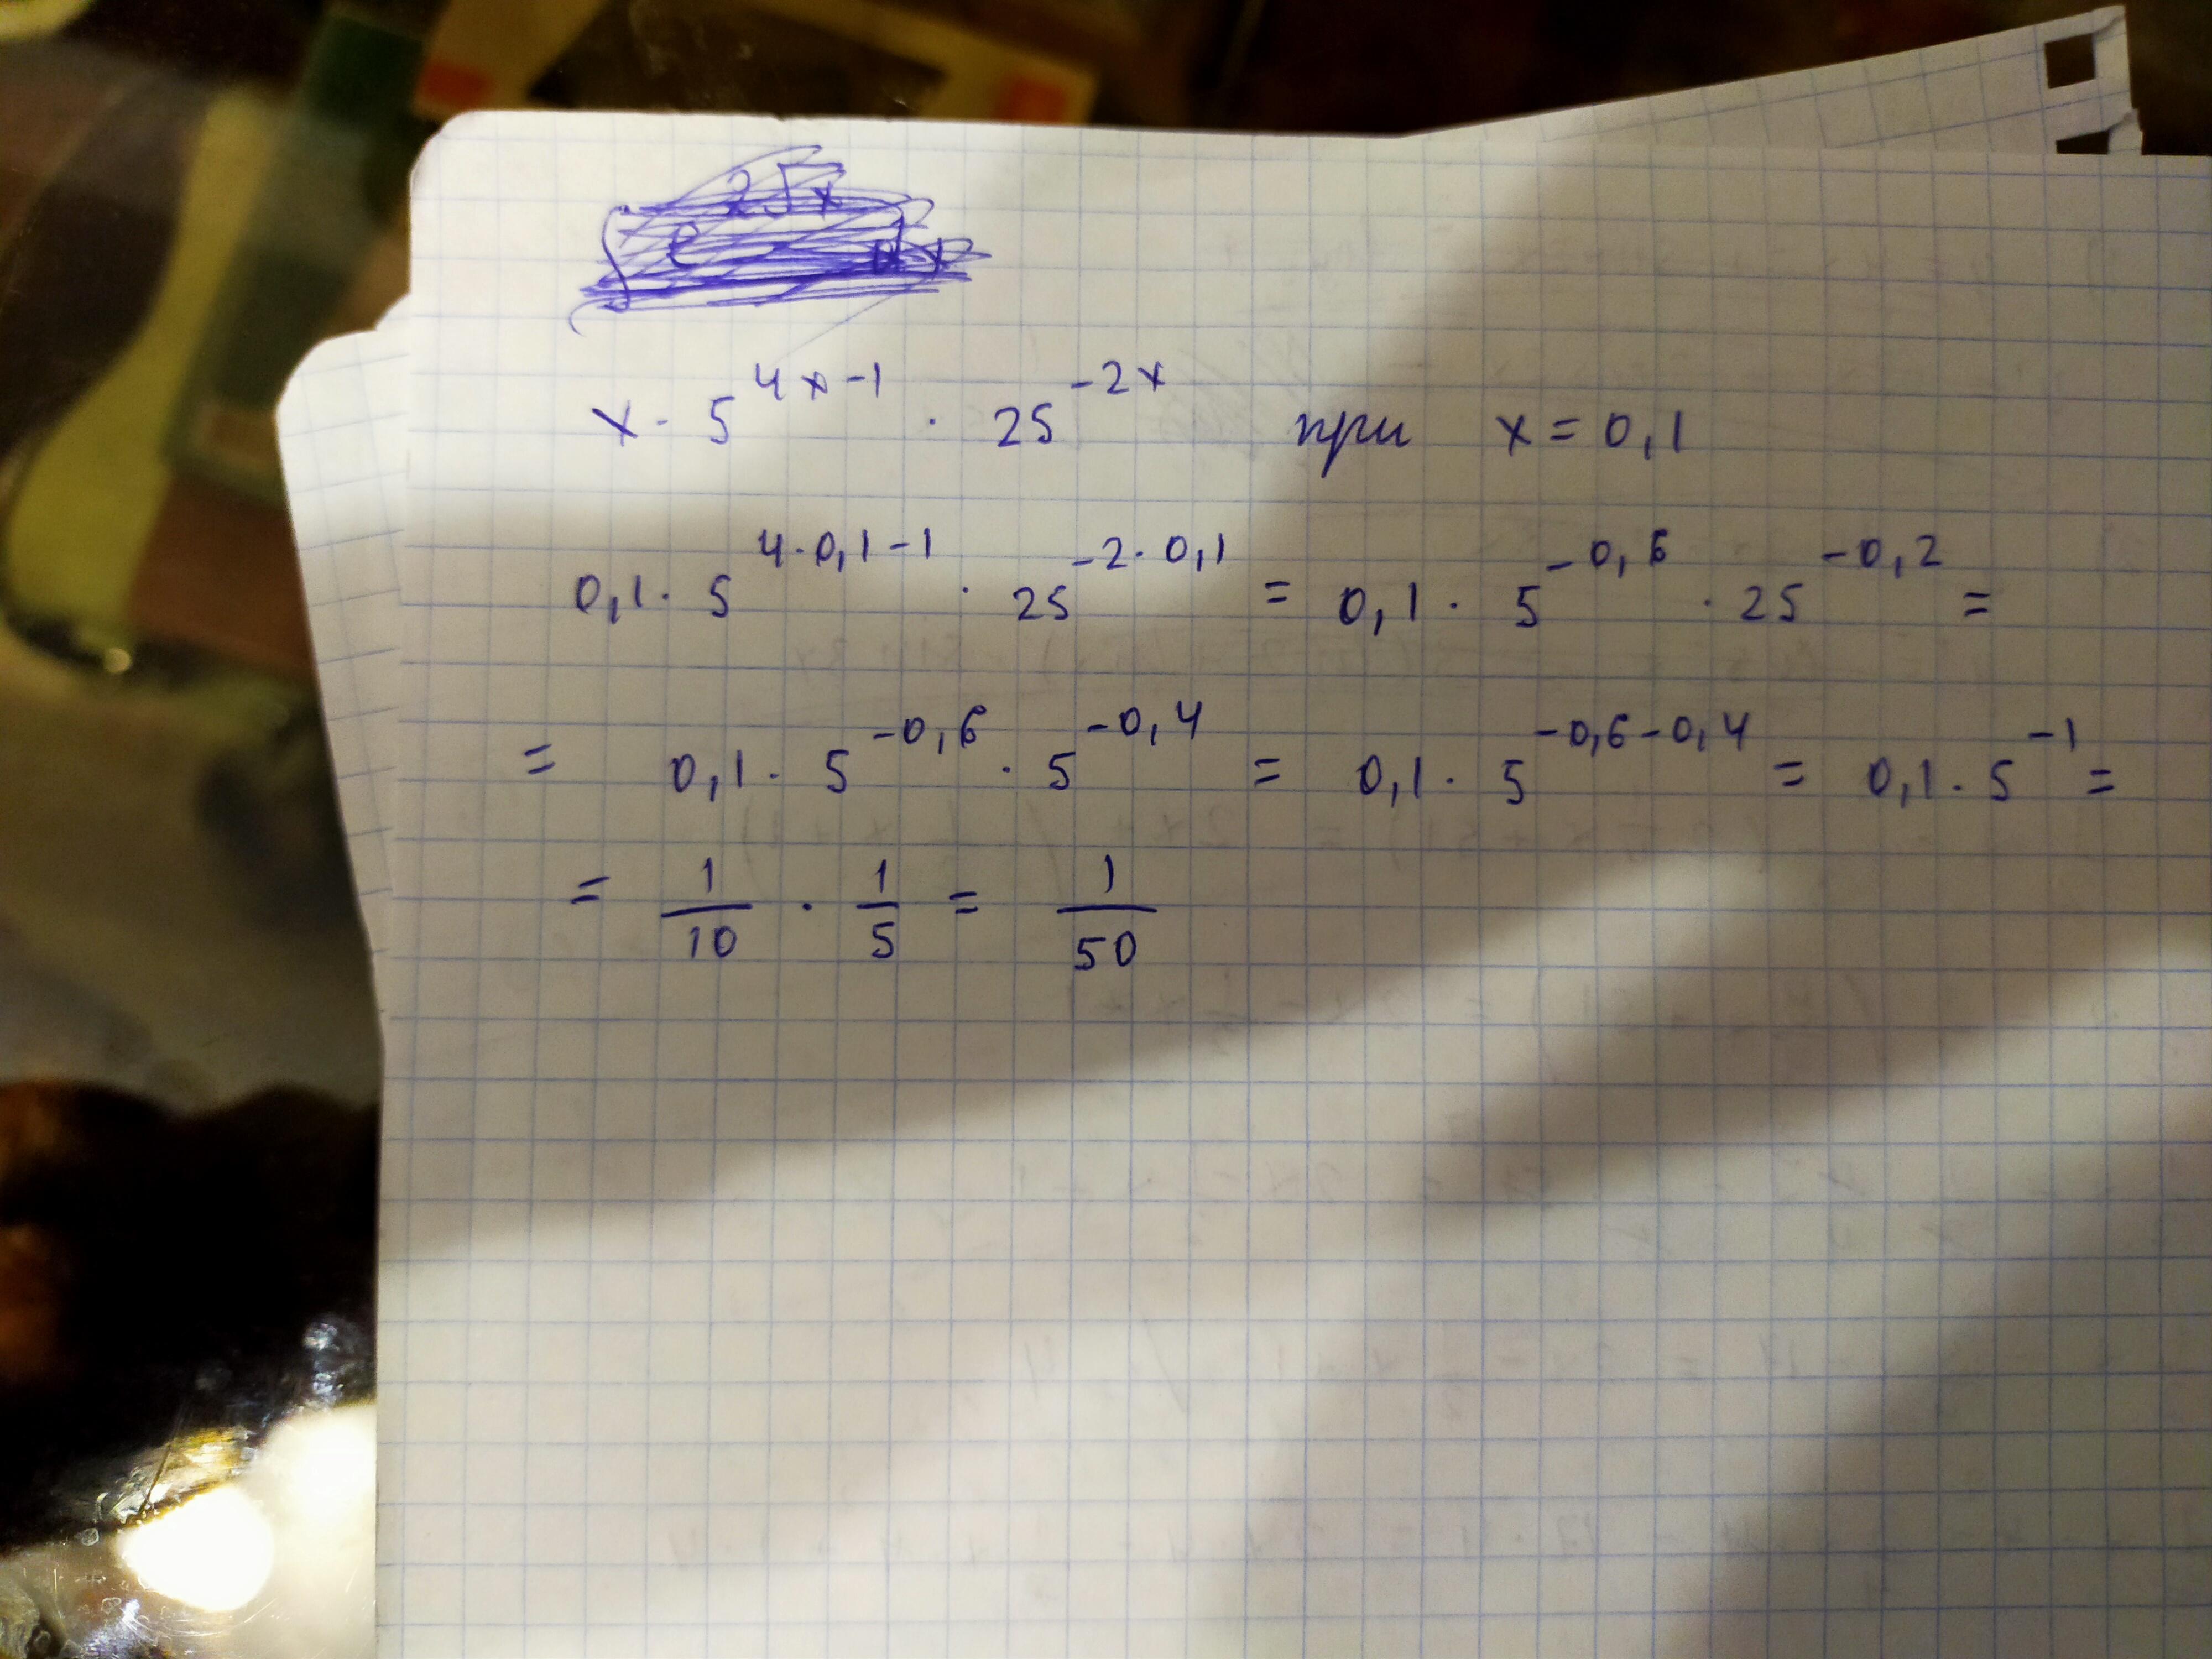 x · 5^{4x-1} · 25^{-2x} при x = 0,1
0,1 · 5^{4·0,1-1} · 25^{-2·0,1} = 0,1 · 5^{-0,6} · 25^{-0,2} =
= 0,1 · 5^{-0,6} · 5^{-0,4} = 0,1 · 5^{-0,6-0,4} = 0,1 · 5^{-1} =
= 1/10 · 1/5 = 1/50